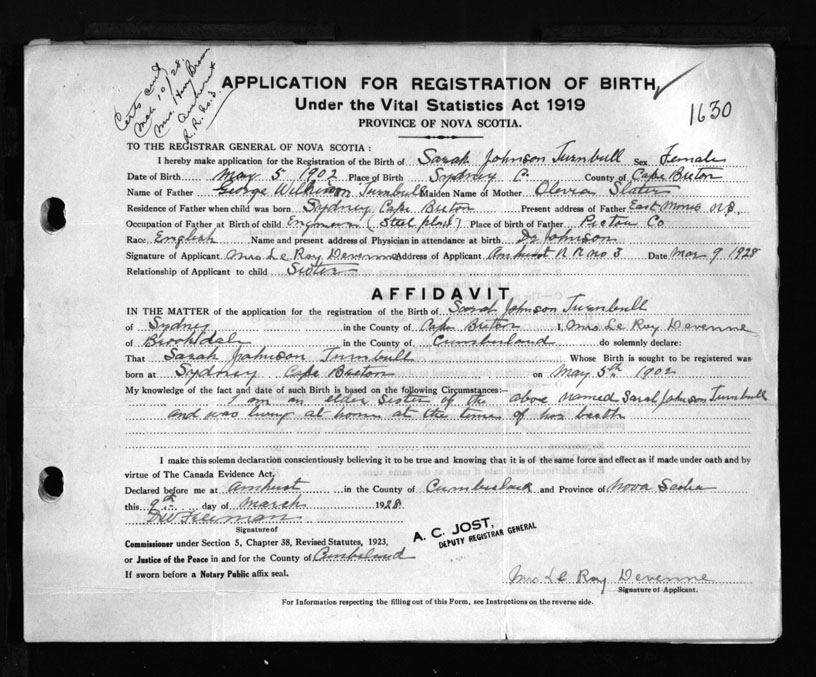 Certs sent
Mch 10/28.
Mrs Harry Brown
Amherst
R.R. No. 3.
APPLICATION FOR REGISTRATION OF BIRTH
1630
Under the Vital Statistics Act 1919
PROVINCE OF NOVA SCOTIA.
TO THE REGISTRAR GENERAL OF NOVA SCOTIA :
I hereby make application for the Registration of the Birth of Sarah Johnson Turnbull Sex Female
Date of Birth May 5 1902 Place of Birth Sydney C. County of Cape Breton
Name of Father George Wilkinson Turnbull Maiden Name of Mother Slater
Residence of Father when child was born Sydney Cape Breton Present address of Father East N.S.
Occupation of Father at Birth of child Engineer (Steel plant) Place of Birth of Father Pictou Co
Race English Name and present address of Physician in attendance at birth Dr Johnson
Signature of Applicant Mrs Le Roy Devenne Address of Applicant Amherst R R No 3 Date Mar 9 1928
Relationship of Applicant to child Sister
AFFIDAVIT
IN THE MATTER of the application for the registration of the Birth of Sarah Johnson Turnbull
of Sydney in the County of Cape Breton I, Mrs Le Roy Devenne
of Brookdale in the County of Cumberland do solemnly declare:
That Sarah Johnson Turnbull Whose Birth is sought to be registered was
born at Sydney Cape Breton on May 5th 1902
My knowledge of the fact and date of such Birth is based on the following Circumstances:—
I am an elder Sister of the above named Sarah Johnson Turnbull
and was living at home at the time of her birth
I make this solemn declaration conscientiously believing it to be true and knowing that it is of the same force and effect as if made under oath and by
virtue of The Canada Evidence Act.
Declared before me at Amherst in the County of Cumberland and Province of Nova Scotia
this 9th day of March 1928
Freeman
Signature of
Commissioner under Section 5, Chapter 38, Revised Statutes, 1923,
or Justice of the Peace in and for the County of Cumberland
If sworn before a Notary Public affix seal.
A. C. JOST,
DEPUTY REGISTRAR GENERAL
Mrs Le Roy Devenne
Signature of Applicant.
For Information respecting the filling out of this Form, see Instructions on the reverse side.